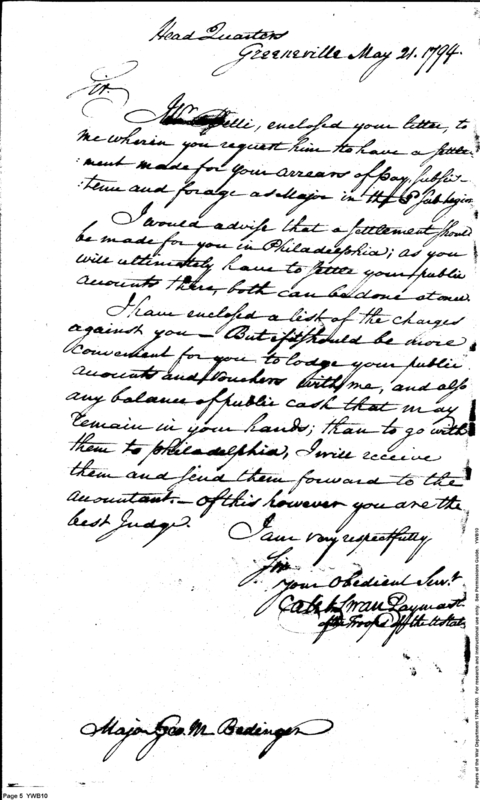 Head Quarters
Greeneville May 21. 1794.
Sir.
Belli, enclosed your letter, to
me wherein you request him to have a settle-
:ment made for your arrears of pay, subsis-
:tence and forage as Major in the Sub legion
I would advise that a settlement should
be made for you in Philadelphia; as you
will ultimately have to settle your public
accounts there, both can be done at once.
I have enclosed a list of the charges
against you — But if it should be more
convenient for you to lodge your public
accounts and vouchers with me, and also
any balance of public cash that may
remain in your hands; than to go with
them to Philadelphia, I will receive
them and send them forward to the
accountant. — Of this however you are the
best Judge.
I am very respectfully
Sir
Your Obedient Servt
Caleb Swan Paymast.
of the Troops of the U States
Major Geo. M Bedinger
Page 5 YWB10
Papers of the War Department 1784-1800. For research and instructional use only. See Permissions Guide. YWB10